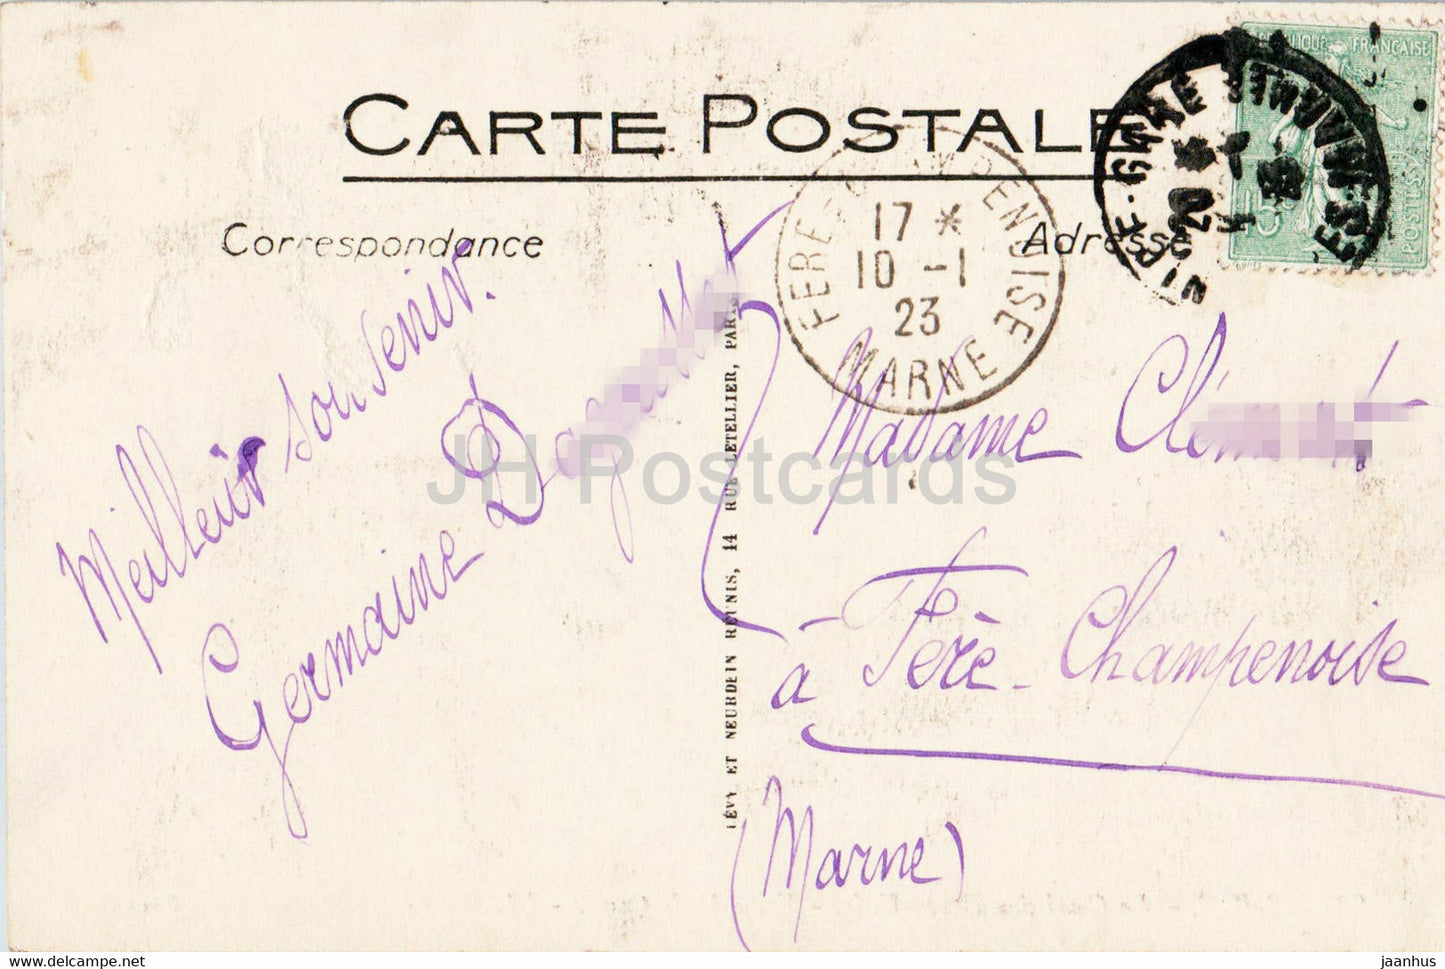 CARTE POSTALE
Correspondance
Adresse
RÉPUBLIQUE FRANÇAISE
POSTES
15
NICE-GARE
ALPES-MARITIMES
FERE-CHAMPENOISE
17 *
10 - 1
23
MARNE
Meilleur souvenir.
Germaine
LÉVY ET NEURDEIN RÉUNIS, 14 RUE LETELLIER, PARIS
Madame
à Fère-Champenoise
(Marne)
JH Postcards
jaanhus